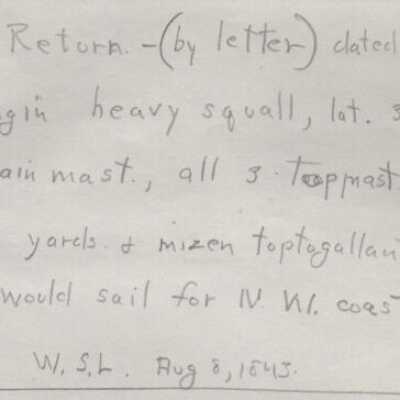 Return. - (by letter) dated
gin heavy squall, lat. 3
ain mast., all 3 Topmast
yards. & mizen toptagallan
would sail for N. W. coas
W.S.L. Aug 8, 1843.